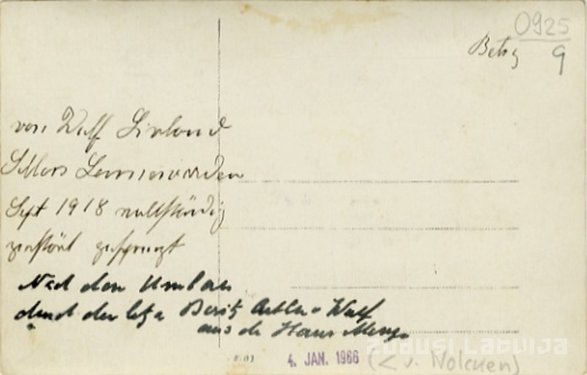 0925
Betsy 9
von Wulf Livland
Schloss Lennewarden
Sept 1918 vollständig
zerstört gesprengt
Nach dem Umbau
durch den letzten Besitz Arthur Wulf
aus dem Hause
4. JAN. 1966
(v. Wolcken)
ZUDUSĪ LATVIJA